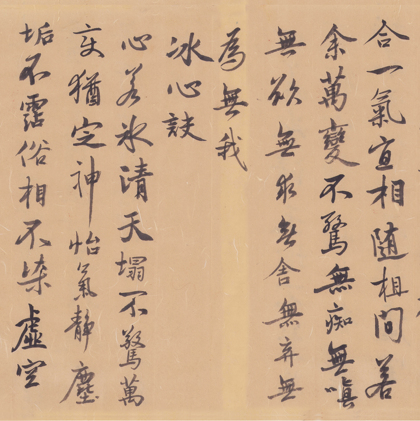 合一氣宜相隨相間若
余萬變不驚無痴無嗔
無欲無求無舍無弃無
為無我
冰心訣
心若冰清天塌不驚萬
變猶定神怡氣靜塵
垢不霑俗相不染虛空